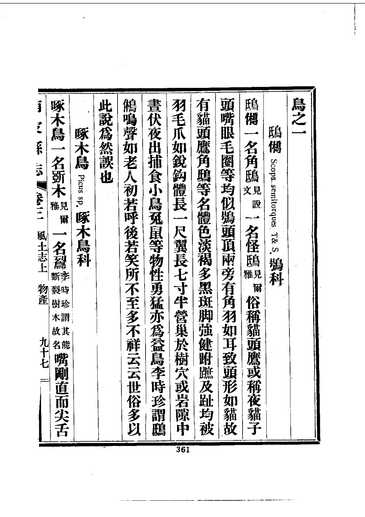 鳥之一
鴟鵂 Scops semitorques T& S. 鴞科
鴟鵂一名角鴟見說文一名怪鴟見爾雅俗稱貓頭鷹或稱夜貓子
頭嘴眼毛圈等均似鴞頭頂兩旁有角羽如耳致頭形如貓故
有貓頭鷹角鴟等名體色淡褐多黑斑脚強健跗蹠及趾均被
羽毛爪如銳鈎體長一尺翼長七寸半營巢於樹穴或岩隙中
晝伏夜出捕食小鳥兔鼠等物性勇猛亦為益鳥李時珍謂鴟
鵂鳴聲如老人初若呼後若笑所不至多不祥云云世俗多以
此說為然誤也
啄木鳥 Picus sp. 啄木鳥科
啄木鳥一名斲木見爾雅一名鴷李時珍謂其能斲裂樹木故名嘴剛直而尖舌
風土志上 物產 九十七
361